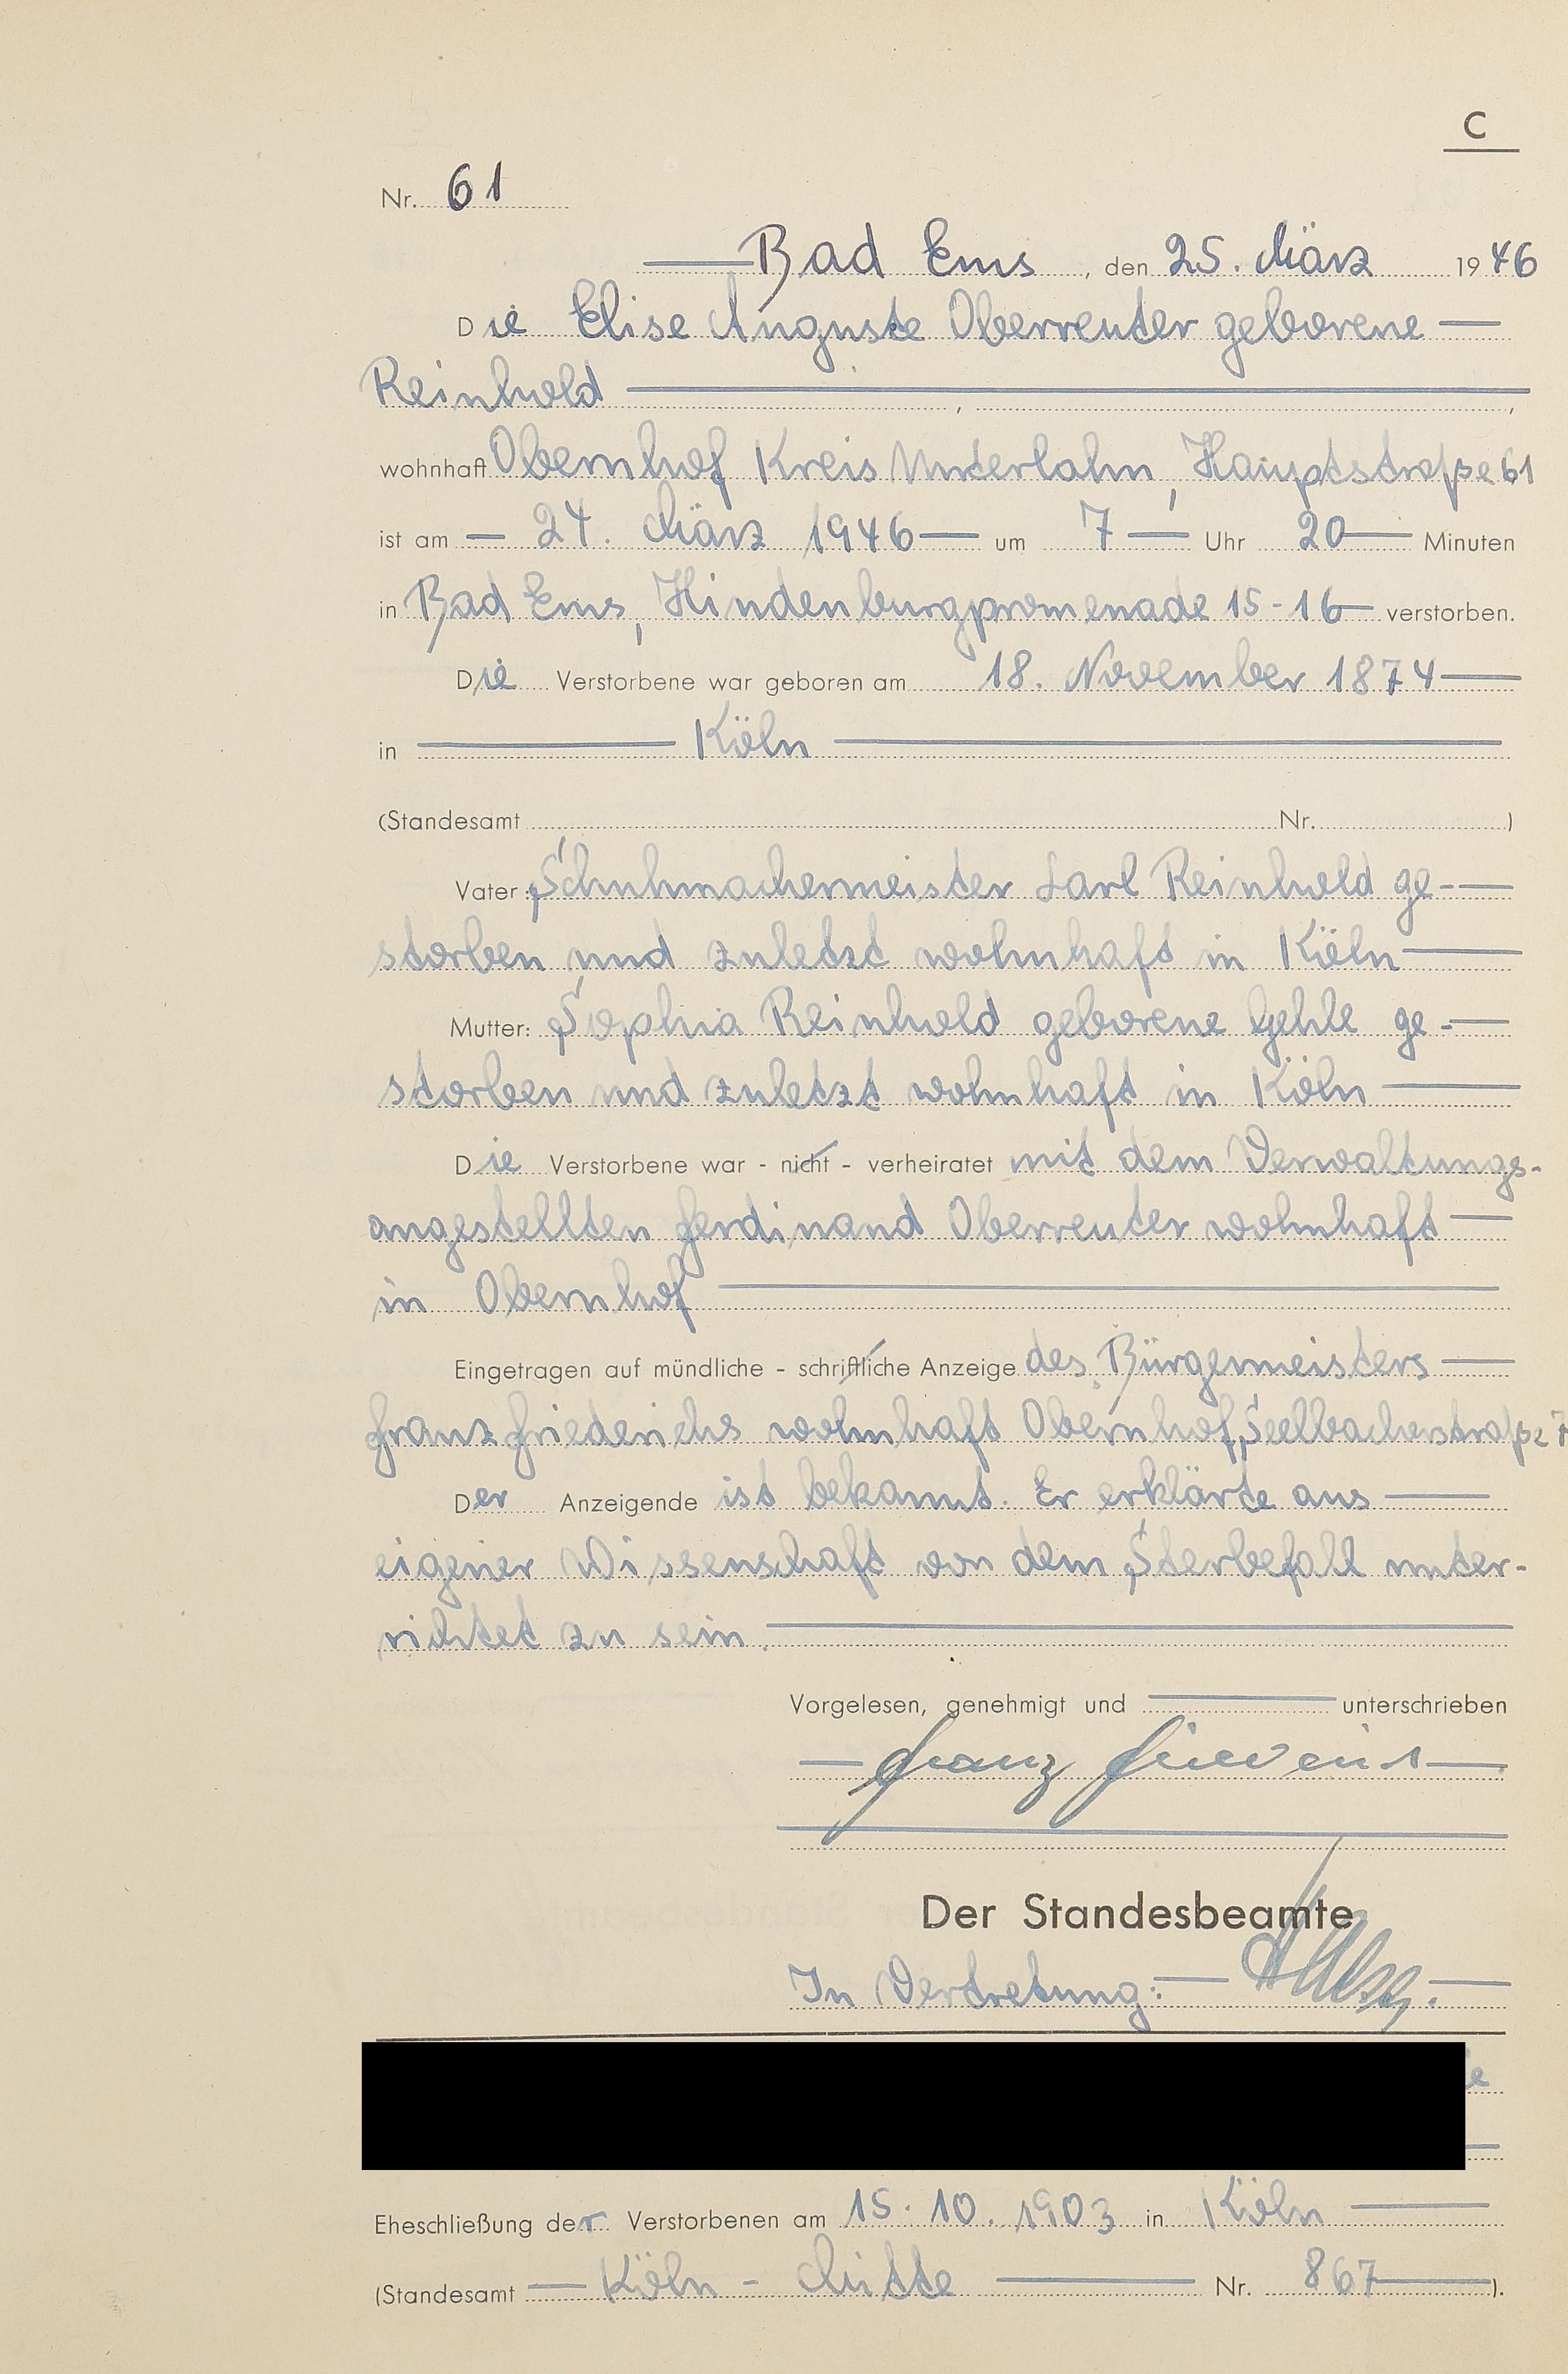 C
Nr. 61
Bad Ems, den 25. März 1946
Die Elise Auguste Oberreuter geborene
Reinhold ,
wohnhaft Obernhof Kreis Unterlahn, Hauptstraße 61
ist am 24. März 1946 um 7 Uhr 20 Minuten
in Bad Ems, Hindenburgpromenade 15-16 verstorben.
Die Verstorbene war geboren am 18. November 1874
in Köln
(Standesamt Nr. )
Vater: Schuhmachermeister Carl Reinhold ge-
storben und zuletzt wohnhaft in Köln
Mutter: Sophia Reinhold geborene Gehle ge-
storben und zuletzt wohnhaft in Köln
Die Verstorbene war - nicht - verheiratet mit dem Verwaltungs-
angestellten Ferdinand Oberreuter wohnhaft
in Obernhof
Eingetragen auf mündliche - schriftliche Anzeige des Bürgermeisters
Franz Friederichs wohnhaft Obernhof, Seelbacherstraße 7
Der Anzeigende ist bekannt. Er erklärte aus
eigener Wissenschaft von dem Sterbefall unter-
richtet zu sein.
Vorgelesen, genehmigt und unterschrieben
Franz
Der Standesbeamte
In Vertretung:
Eheschließung der Verstorbenen am 15. 10. 1903 in Köln
(Standesamt Köln - Mitte Nr. 867).